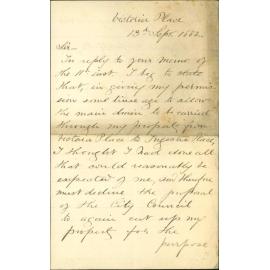 Victoria Place
13th Sept. 1882.
Sir—
In reply to your memo of
the 11th inst. I beg to state
that, in giving my permis-
sion some time ago to allow
the main drain to be carried
through my property from
Victoria Place to Ingestre Place,
I thought I had done all
that could reasonably be
expected of me, and therefore
must decline the proposal
of the City Council
to again cut up my
property for the
purpose